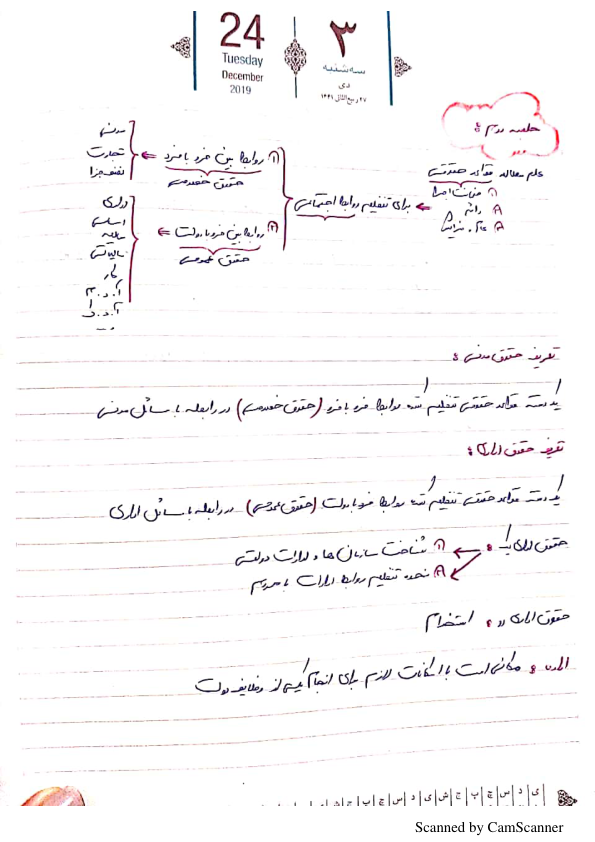 24
Tuesday
December
2019
۳
سه شنبه
دی
۲۷ ربیع الثانی ۱۴۴۱
جلسه دوم :
علم مطالعه قواعد حقوقی
برای تنظیم روابط اجتماعی
۱) روابط بین فرد با فرد
حقوق خصوصی
مدنی
تجارت
۲) روابط بین فرد با دولت
حقوق عمومی
اداری
اساسی
مالیاتی
کار
آ.د.م
آ.د.ک
تعریف حقوق مدنی :
یک دسته قواعد حقوقی تنظیم کننده روابط فرد با فرد (حقوق خصوصی) در رابطه با مسائل مدنی
تعریف حقوق اداری :
یک دسته قواعد حقوقی تنظیم کننده روابط فرد با دولت (حقوق عمومی) در رابطه با مسائل اداری
حقوق اداری یک :
۱) شناخت سازمان ها و ادارات دولتی
۲) نحوه تنظیم روابط ادارات با مردم
حقوق اداری دو : استخدام
اداره : مکانی است با امکانات لازم برای انجام یکی از وظایف دولت
Scanned by CamScanner